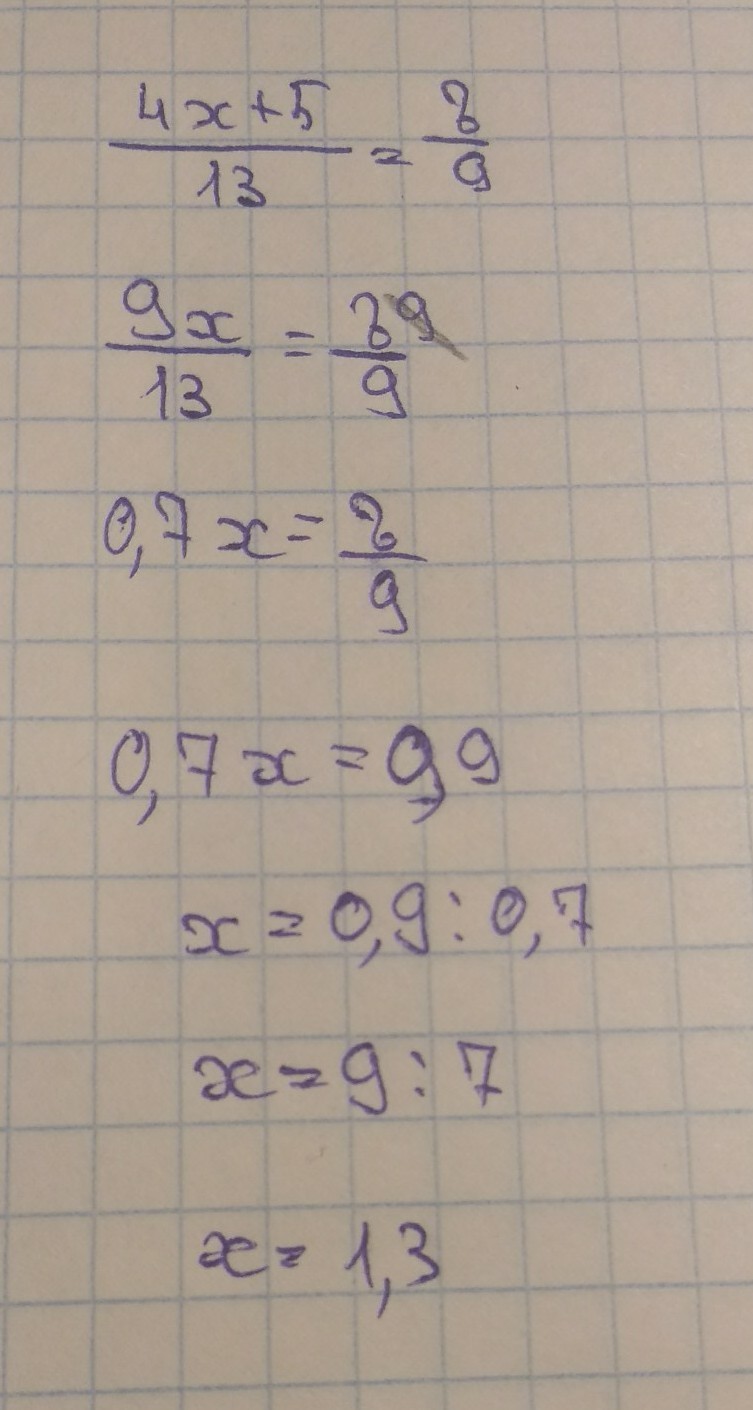 (4x+5)/13 = 8/9
9x/13 = 8/9
0,7x = 8/9
0,7x = 0,9
x = 0,9 : 0,7
x = 9 : 7
x = 1,3